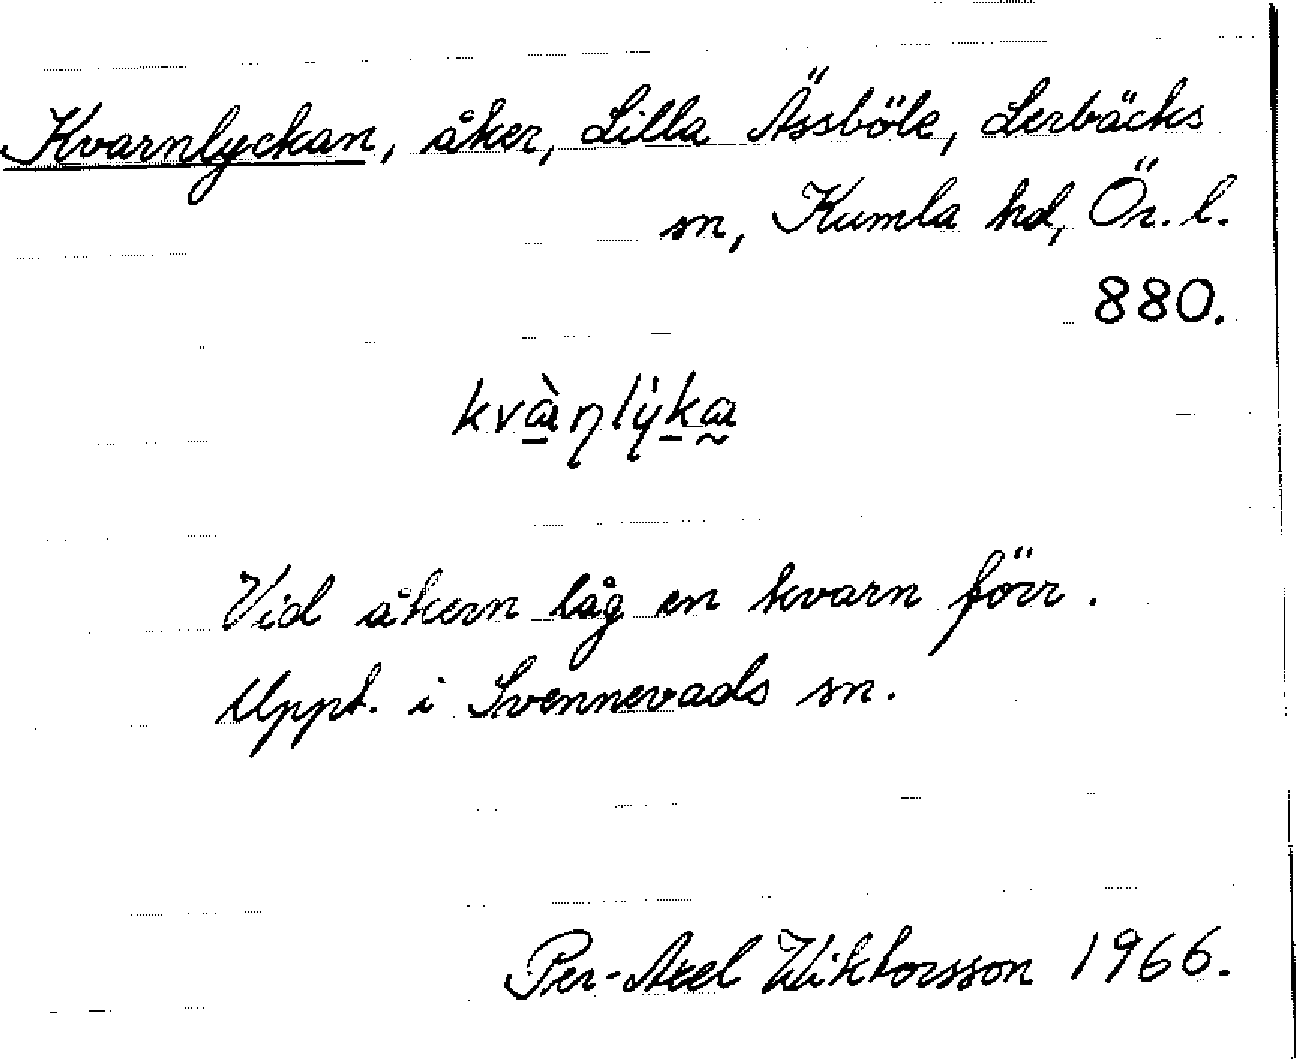 Kvarnlyckan, åker, Lilla Ässböle, Lerbäcks
sn, Kumla hd, Ör. l.
880.
Vid åkern låg en kvarn förr.
Uppt. i Svennevads sn.
Per-Axel Wiktorsson 1966.